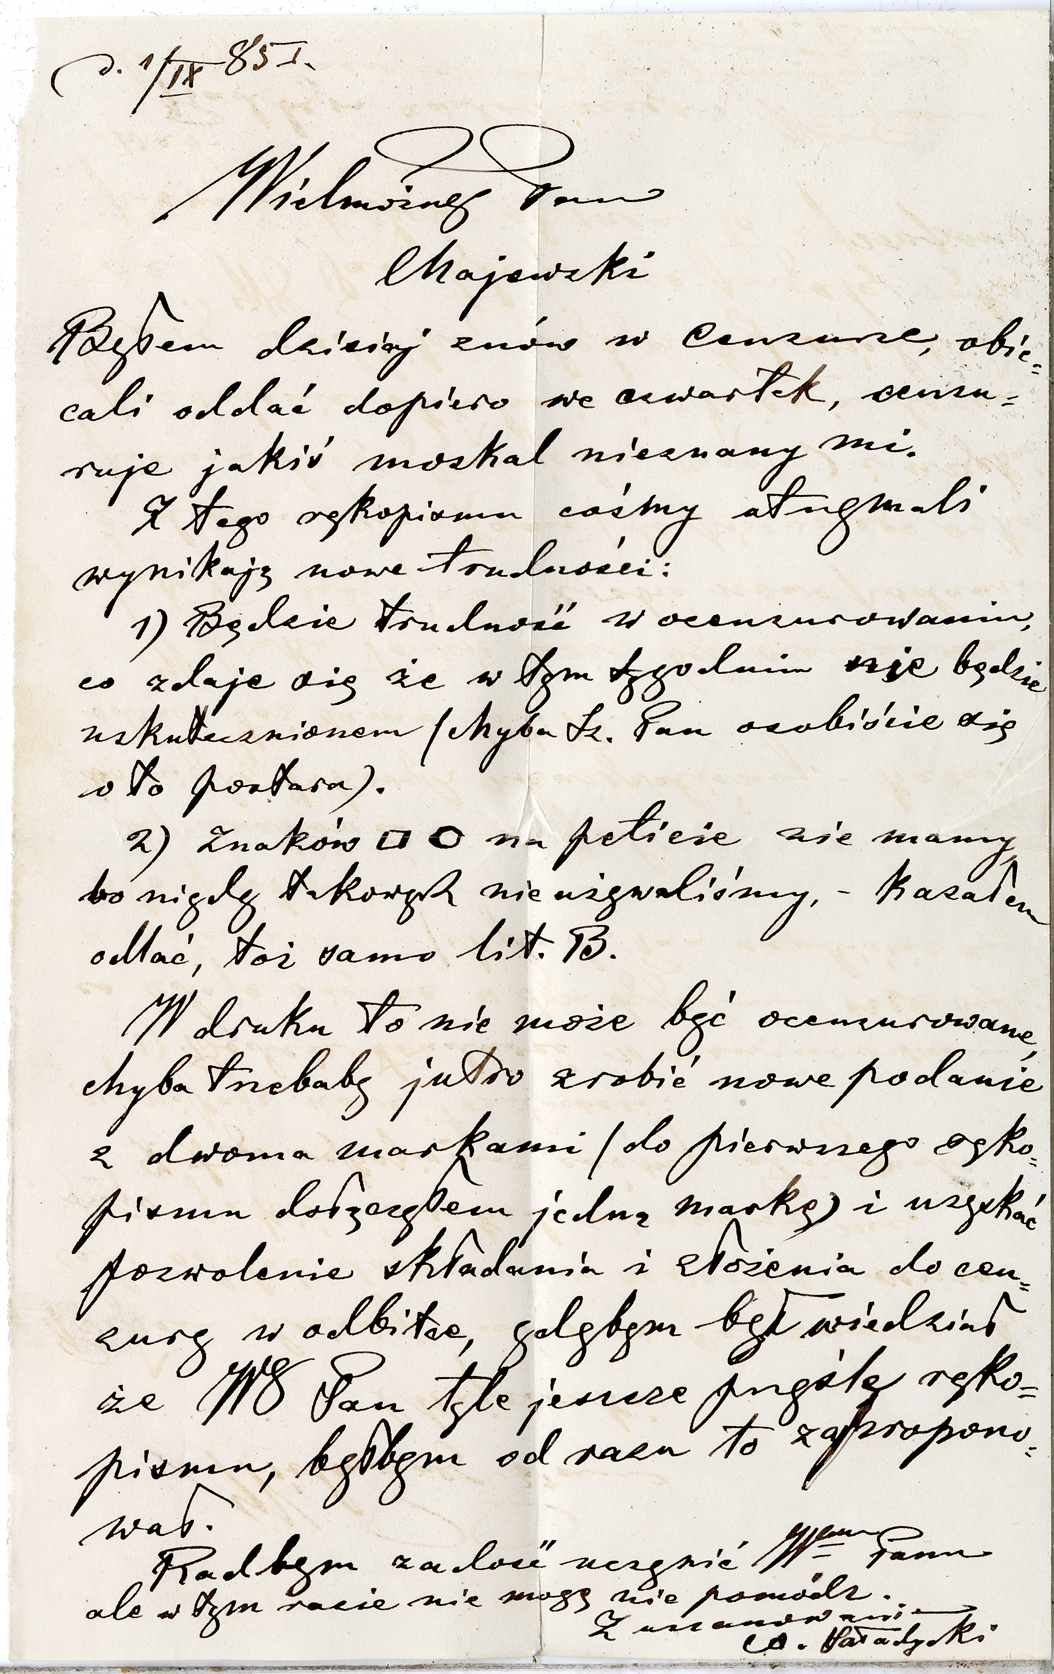 d. 1/IX 85 r.
Wielmożny Pan
Majewski
Byłem dzisiaj znów w Cenzurze, obie=
cali oddać dopiero we czwartek, cenzu=
ruje jakiś moskal nieznany mi.
Z tego rękopismu cośmy otrzymali
wynikają nowe trudności:
1) Będzie trudność w ocenzurowaniu,
co zdaje się że w tym tygodniu nie będzie
uskutecznionem (chyba Sz. Pan osobiście się
o to postara).
2) Znaków □ O na peticie nie mamy,
bo nigdy takowych nie używaliśmy, - kazałem
odlać, toż samo lit. B.
W druku to nie może być ocenzurowane,
chyba trzebaby jutro zrobić nowe podanie
z dwoma markami (do pierwszego ręko=
pismu dołączyłem jedną markę) i uzyskać
pozwolenie składania i złożenia do cen=
zury w odbitce, gdybym był wiedział
że WP Pan tyle jeszcze przyśle ręko=
pismu, byłbym od razu to zapropono=
wał.
Radbym zadość uczynić Wmu Panu
ale w tym razie nie mogę nic pomódz.
Z uszanowaniem